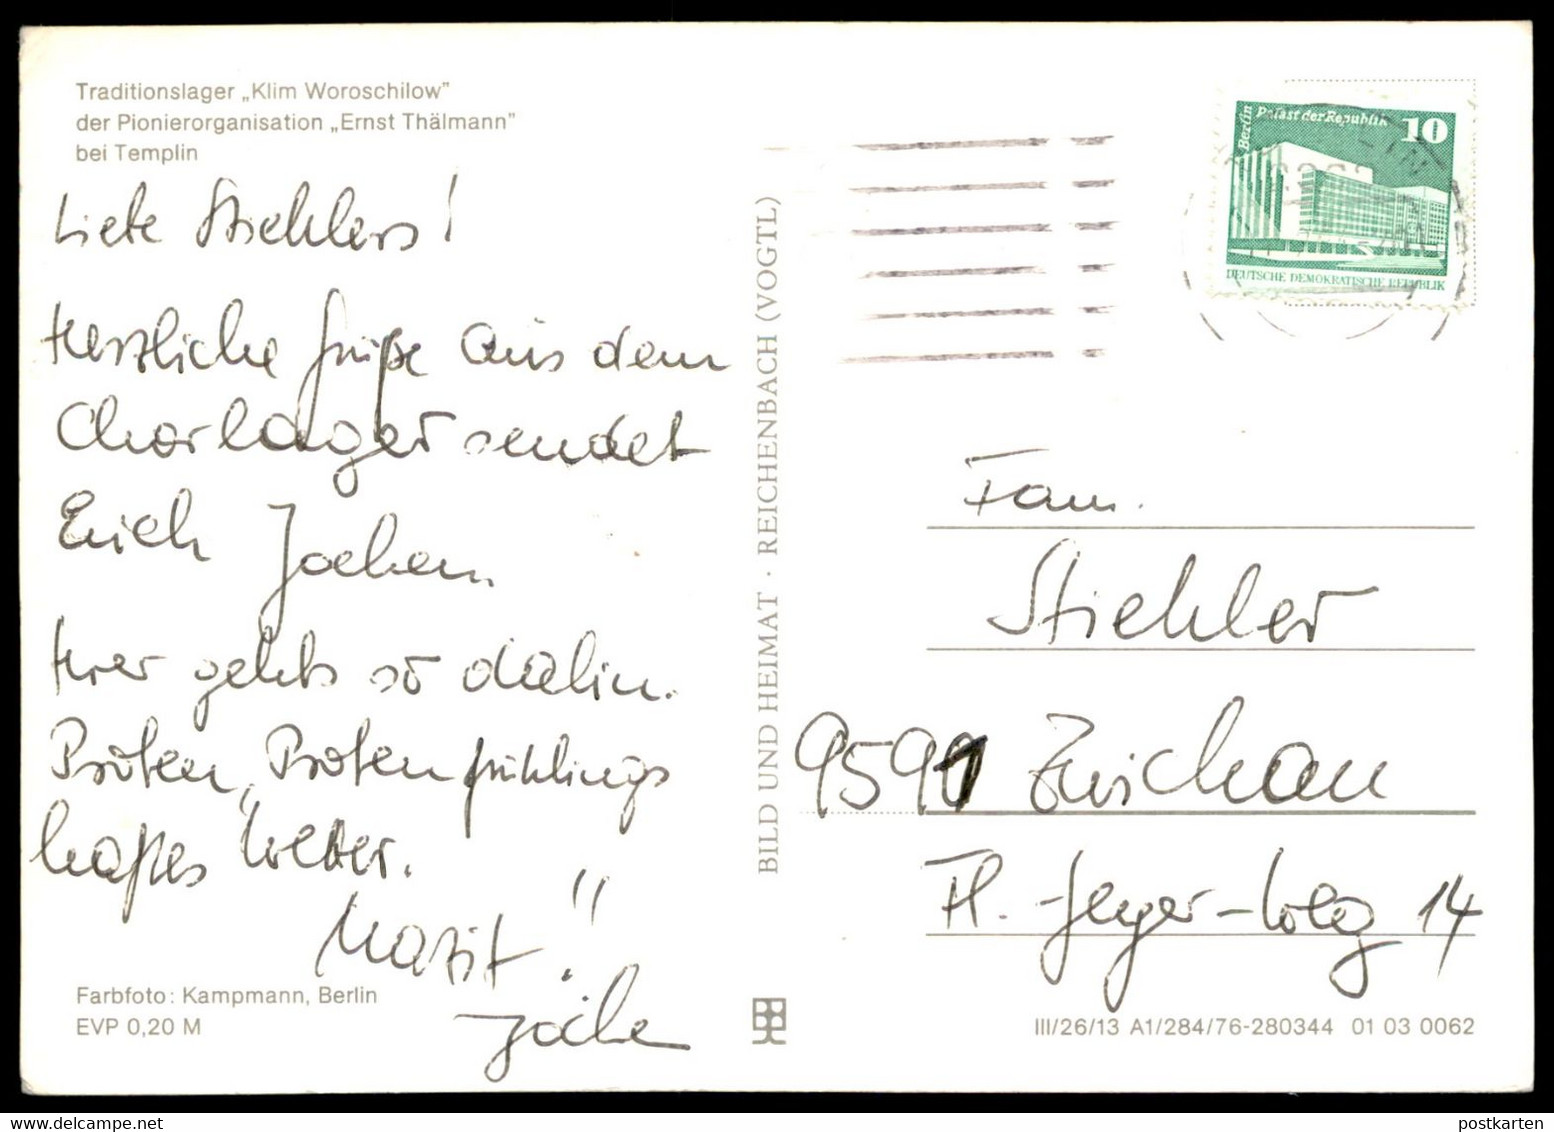 Traditionslager „Klim Woroschilow"
der Pionierorganisation „Ernst Thälmann"
bei Templin
Liebe Stiehlers!
Herzliche Grüße aus dem
Chorlager sendet
Euich Jochen.
Hier gehts so dahin.
Proben, Proben frühlings
haftes Wetter.
Jöche
Farbfoto: Kampmann, Berlin
EVP 0,20 M
BILD UND HEIMAT · REICHENBACH (VOGTL)
Berlin Palast der Republik 10
DEUTSCHE DEMOKRATISCHE REPUBLIK
Fam.
Stiehler
9591 Zwickau
Fl.-Geyer-Weg 14
III/26/13 A1/284/76-280344 01 03 0062
postkarten